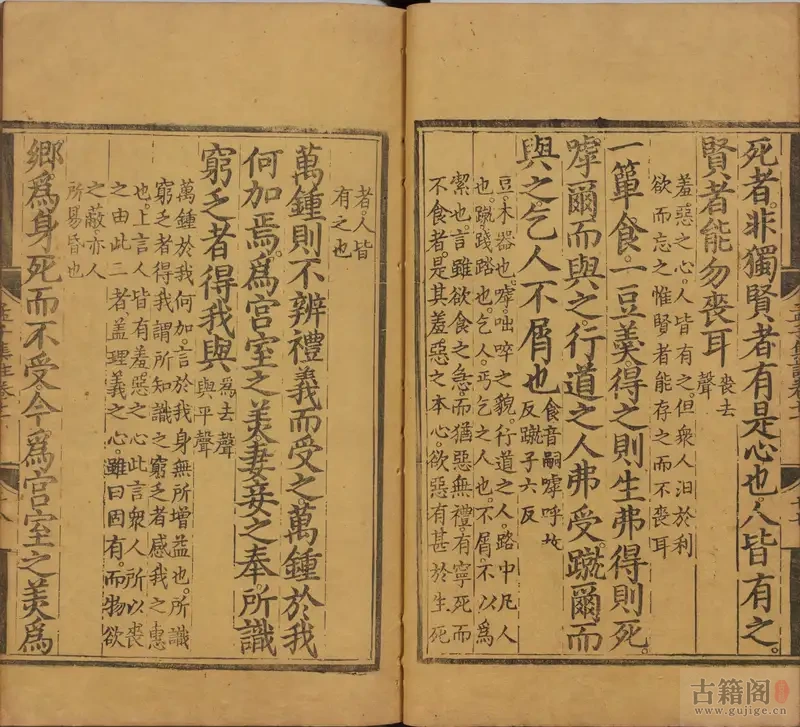 死者。非獨賢者有是心也。人皆有之。
賢者能勿喪耳
喪去
聲
羞惡之心。人皆有之。但衆人汨於利
欲而忘之。惟賢者能存之而不喪耳
一簞食。一豆羹。得之則生。弗得則死。
嘑爾而與之。行道之人弗受。蹴爾而
與之。乞人不屑也
食音嗣嘑呼故
反蹴子六反
豆。木器也。嘑。咄啐之貌。行道之人。路中凡人
也。蹴。踐踏也。乞人。丐乞之人也。不屑。不以爲
潔也。言雖欲食之急。而猶惡無禮。有寧死而
不食者。是其羞惡之本心。欲惡有甚於生死
者。人皆
有之也
萬鍾則不辨禮義而受之。萬鍾於我
何加焉。爲宮室之美。妻妾之奉。所識
窮乏者得我與
爲去聲
與平聲
萬鍾於我何加。言於我身無所增益也。所識
窮乏者得我。謂所知識之窮乏者感我之惠
也。上言人皆有羞惡之心。此言衆人所以喪
之。由此二者。盖理義之心。雖曰固有。而物欲
之蔽。亦人
所易昏也
鄉爲身死而不受。今爲宮室之美爲
古籍阁
www.gujige.cn